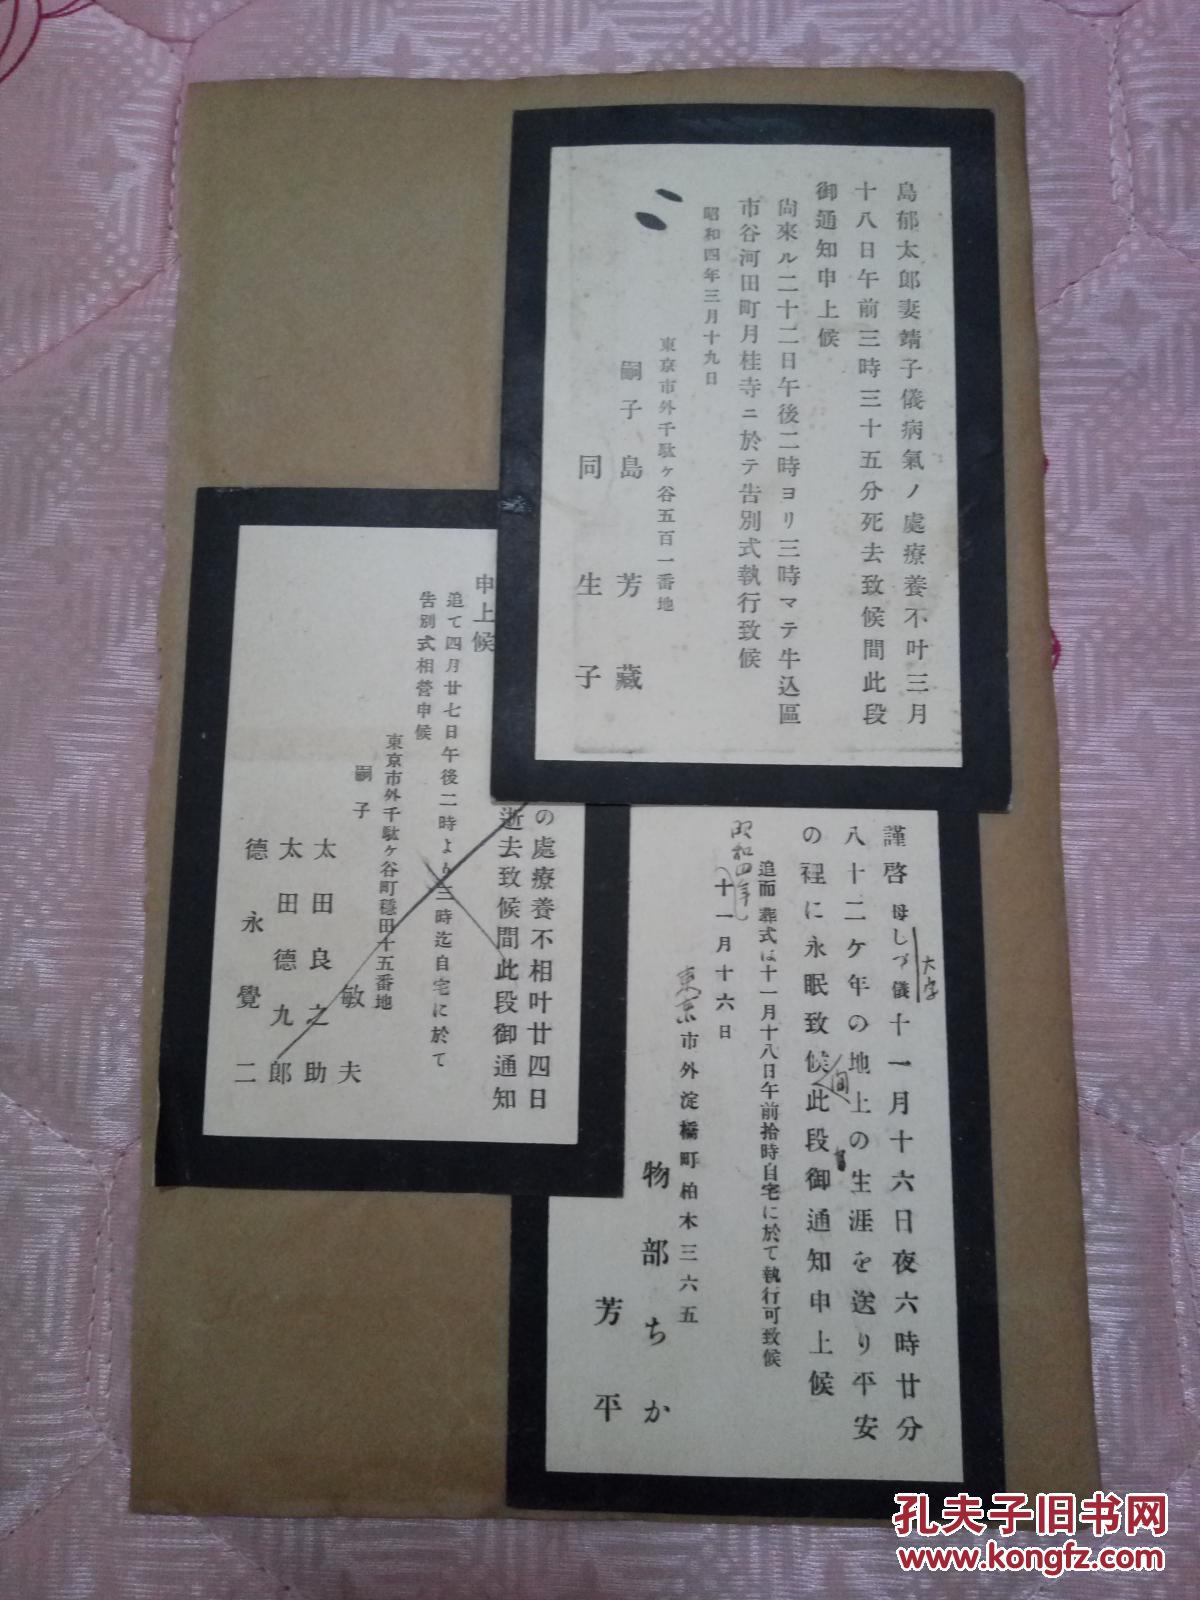 島郁太郎妻靖子儀病氣ノ處療養不叶三月
十八日午前三時三十五分死去致候間此段
御通知申上候
尙來ル二十二日午後二時ヨリ三時マテ牛込區
市谷河田町月桂寺ニ於テ告別式執行致候
昭和四年三月十九日
東京市外千駄ヶ谷五百一番地
嗣子 島 芳藏
同 生子
の處療養不相叶廿四日
逝去致候間此段御通知
申上候
追て四月廿七日午後二時より三時迄自宅に於て
告別式相營申候
東京市外千駄ヶ谷町穩田十五番地
嗣子 敏夫
太田良之助
太田德九郎
德永覺二
謹啓 母しづ儀十一月十六日夜六時廿分
大字
八十二ケ年の地上の生涯を送り平安
の裡に永眠致候此段御通知申上候
間
追而 葬式は十一月十八日午前拾時自宅に於て執行可致候
昭和四年
十一月十六日
東京市外淀橋町柏木三六五
物部ちか
芳平
孔夫子旧书网
www.kongfz.com